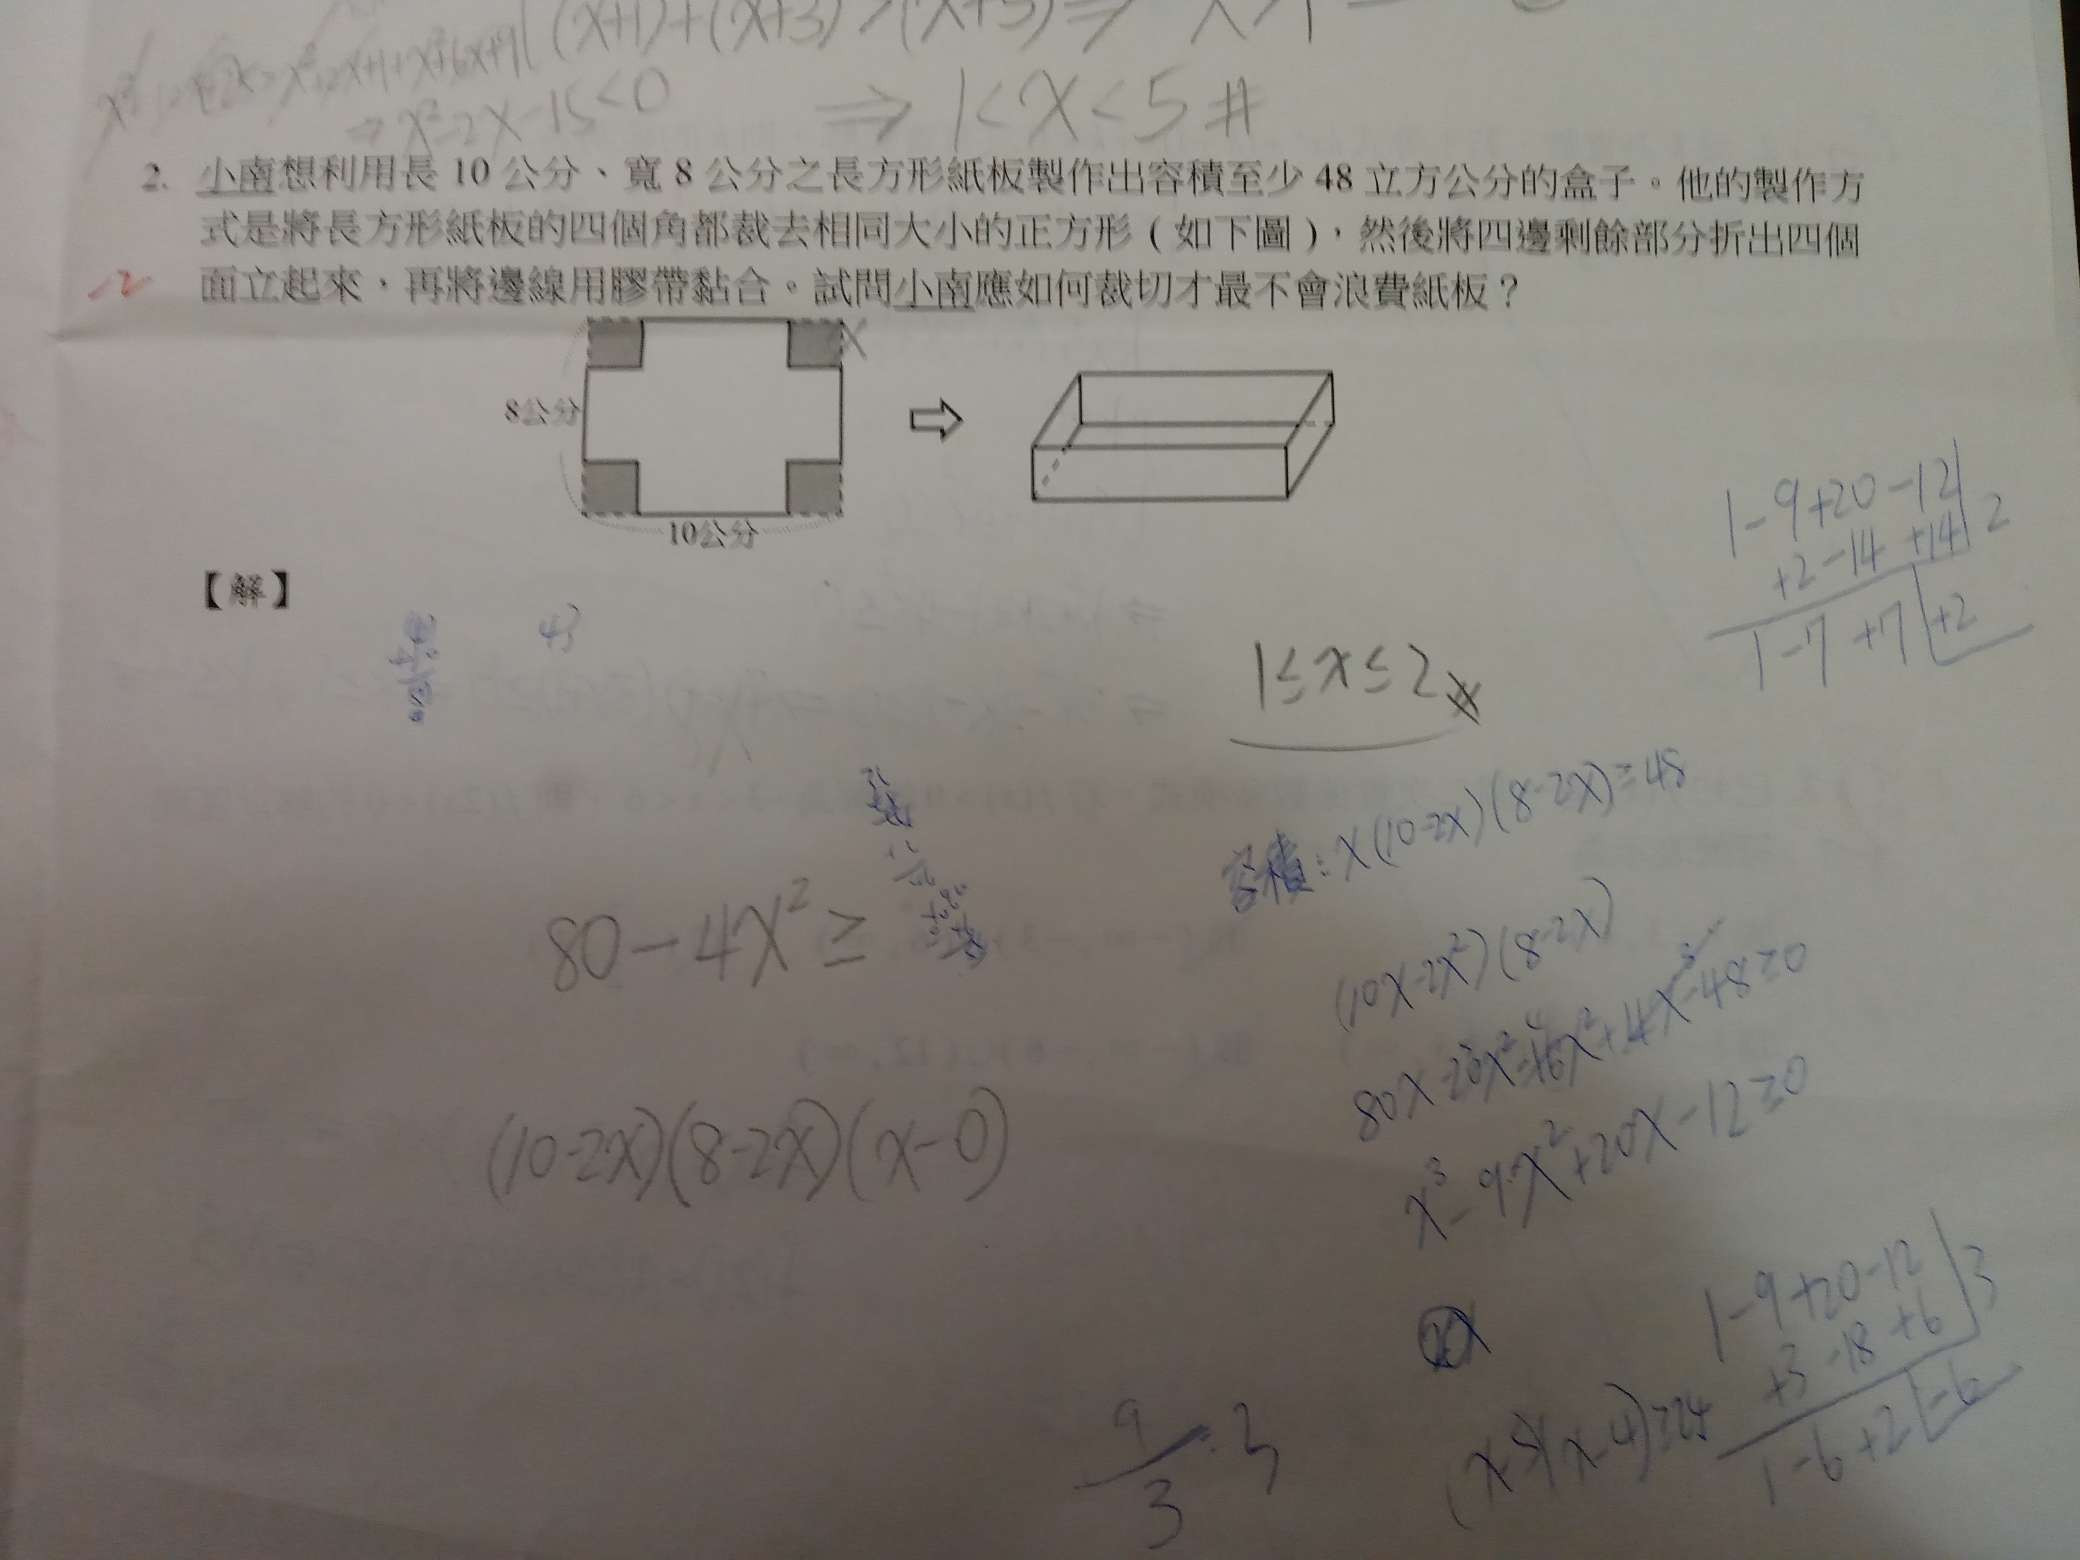 (x+1)+(x+3)>(x+5)⇒ x>1
⇒ x²-2x-15<0 ⇒ 1<x<5 #
2. 小南想利用長 10 公分、寬 8 公分之長方形紙板製作出容積至少 48 立方公分的盒子。他的製作方
式是將長方形紙板的四個角都裁去相同大小的正方形（如下圖），然後將四邊剩餘部分折出四個
面立起來，再將邊線用膠帶黏合。試問小南應如何裁切才最不會浪費紙板？
x
8公分
10公分
【解】
1-9+20-12 2
+2-14 +14
1-7 +7 +2
43
1≤x≤2
容積：x(10-2x)(8-2x)≥48
80-4x²≥
(10x-2x²)(8-2x)
80x-20x²-16x²+4x³-48≥0
(10-2x)(8-2x)(x-0)
x³-9x²+20x-12≥0
1-9+20-12 3
+3-18+6
1-6+2 -6
x
(x-5)(x-4)≥24
9
3
3